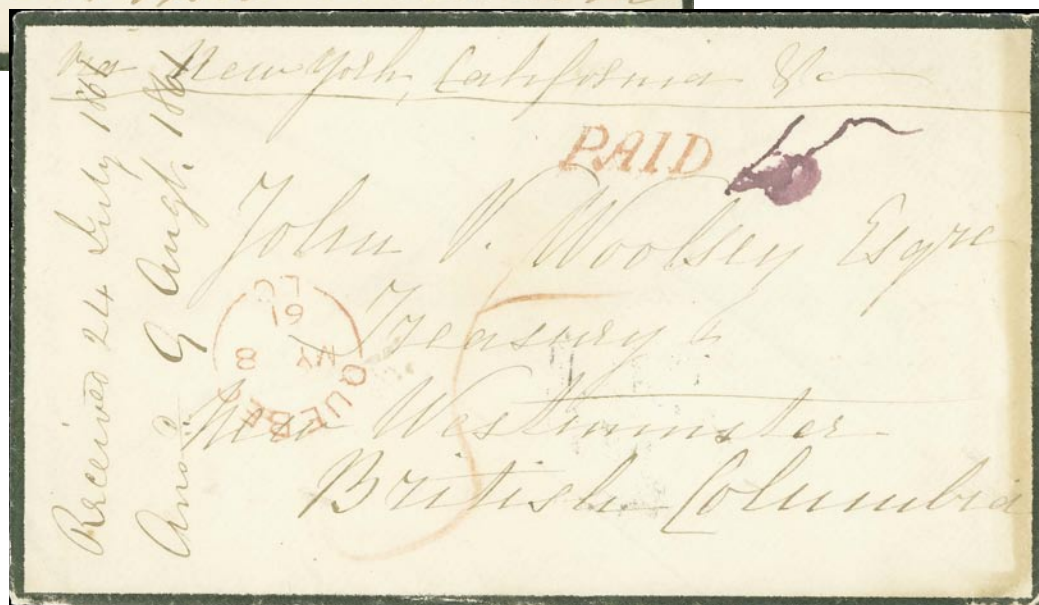 Via New York, California &c
PAID
John V. Woolsey Esqre
Treasury
New Westminster
British Columbia
5
QUEBEC
MY 8
61
L.C
Received 24 July 1861
Ansd. 9 Augt. 1861